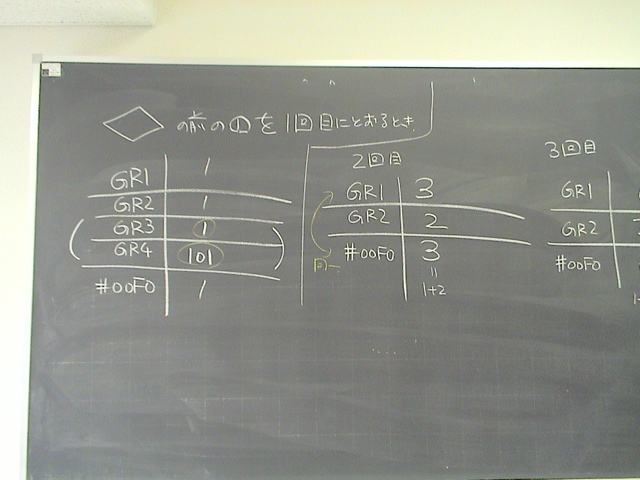 の前の①を1回目にとおるとき
GR1 1
GR2 1
GR3 1
GR4 101
#00F0 1
2回目
GR1 3
GR2 2
#00F0 3
同一
"
1+2
3回目
GR1
GR2
#00F0